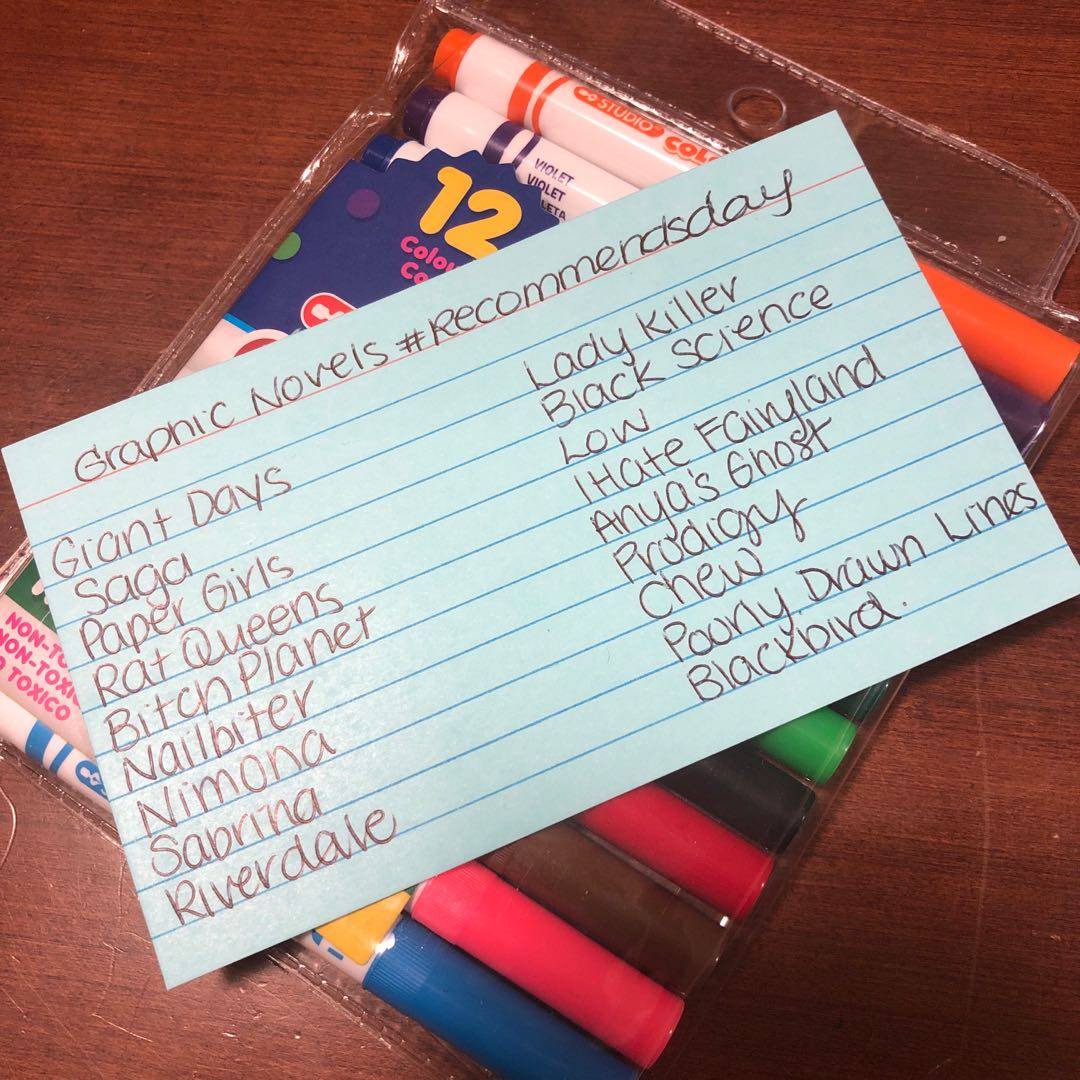 STUDIO
COL
VIOLET
VIOLET
LETA
12
Colou
Co
Graphic Novels #Recommendsday
Giant Days
Saga
Paper Girls
Rat Queens
Bitch Planet
Nailbiter
Nimona
Sabrina
Riverdale
Lady Killer
Black Science
Low
I Hate Fairyland
Anya's Ghost
Prodigy
Chew
Poorly Drawn Lines
Blackbird.
NON-TO
NON-TOXI
O TOXICO